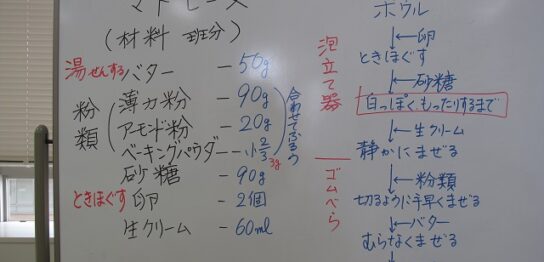 マドレーヌ
(材料 班分)
湯せんする バター － 50g
粉類
薄力粉 － 90g
アーモンド粉 － 20g
ベーキングパウダー － 小2/3
3g
合わせてふるう
砂糖 － 90g
ときほぐす 卵 － 2個
生クリーム － 60ml
泡立て器
ゴムべら
ボウル
←卵
ときほぐす
←砂糖
白っぽくもったりするまで
←生クリーム
静かにまぜる
←粉類
切るように手早くまぜる
←バター
むらなくまぜる